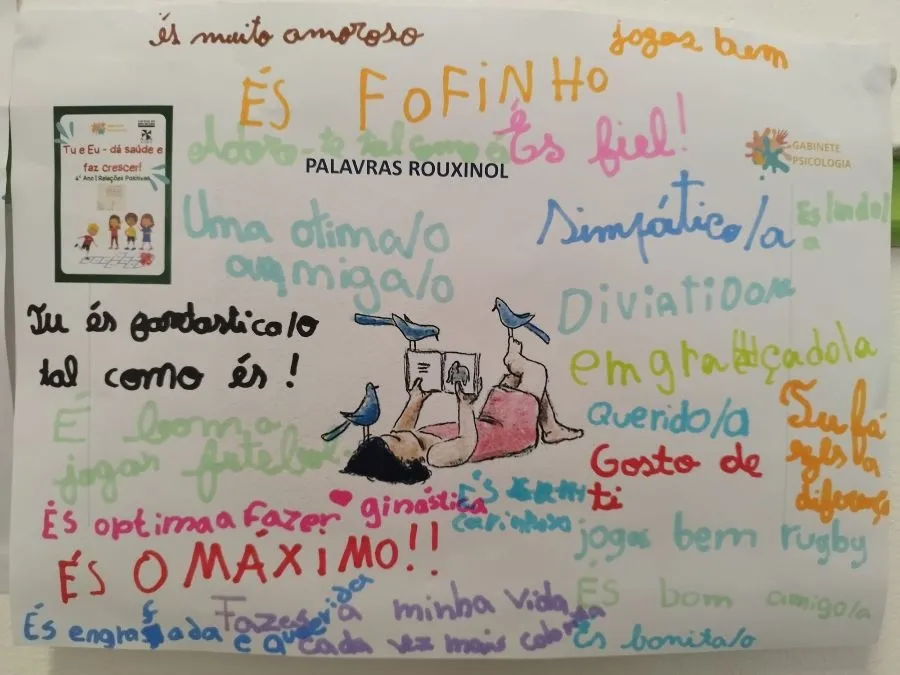 és muito amoroso
jogas bem
ÉS FOFINHO
adoro-te tal como és
És fiel!
GABINETE
PSICOLOGIA
Tu e Eu - dá saúde e
faz crescer!
4º Ano | Relações Positivas
PALAVRAS ROUXINOL
Uma otima/o
amiga/o
Simpático/a
És lindo/
a
Tu és fantastico/o
tal como és!
Diviatido/a
emgraçado/a
É bom a
jogar futebol
Querido/a
Gosto de
ti
Tu fá
zes a
diferença
És optima a Fazer ginástica
ÉS
carinhoso
jogas bem rugby
ÉS O MÁXIMO!!
ÉS bom amigo/a
Fazes a minha vida
cada vez mais colorida
És engraçada e querida
És bonita/o